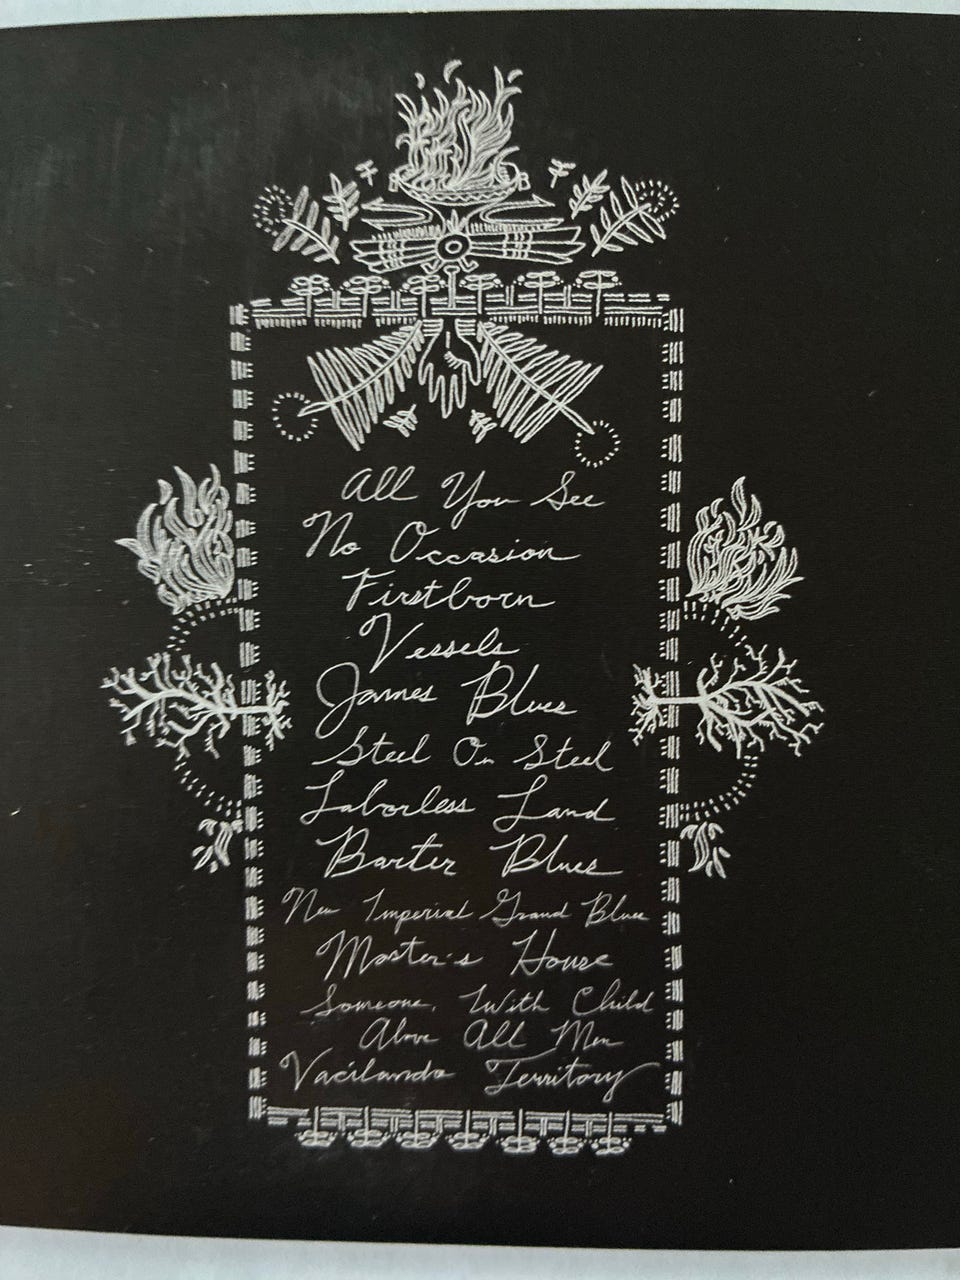 All You See
No Occasion
Firstborn
Vessels
James Blues
Steel On Steel
Laborless Land
Barter Blues
New Imperial Grand Blues
Master's House
Someone, With Child
Above All Men
Vacilando Territory